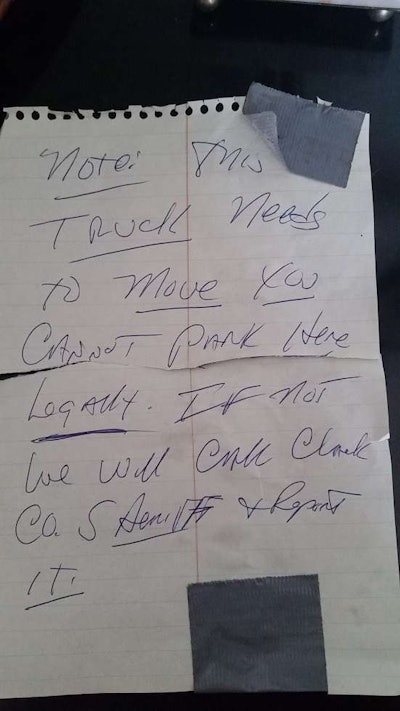 Note: This
TRUCK Needs
to Move You
CANNOT PARK Here
LegAlly. IF NOT
We will CAll Clark
Co. SHeriff & Report
IT.